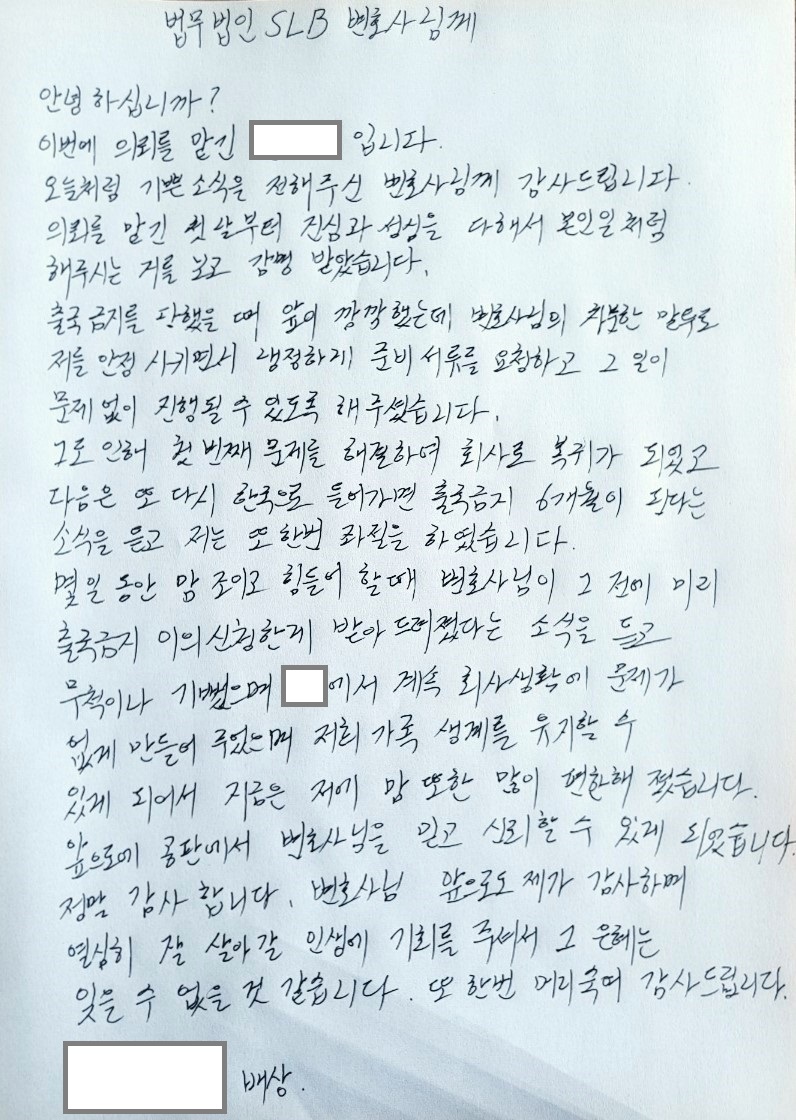 법무법인 SLB 변호사님께
안녕하십니까?
이번에 의뢰를 맡긴 입니다.
오늘처럼 기쁜 소식을 전해주신 변호사님께 감사드립니다.
의뢰를 맡긴 첫날부터 진심과 성심을 다해서 본인일처럼
해주시는 거를 보고 감명 받았습니다.
출국금지를 당했을 때 앞이 깜깍했는데 변호사님의 차분한 말투로
저를 안정 시키면서 냉정하게 준비 서류를 요청하고 그 일이
문제 없이 진행될 수 있도록 해주셨습니다.
그로 인해 첫 번째 문제를 해결하여 회사로 복귀가 되었고
다음은 또 다시 한국으로 들어가면 출국금지 6개월이 된다는
소식을 듣고 저는 또 한번 좌절을 하였습니다.
몇일 동안 맘 조이고 힘들어 할때 변호사님이 그 전에 미리
출국금지 이의신청한게 받아 드려졌다는 소식을 듣고
무척이나 기뻤으며 에서 계속 회사생활에 문제가
없게 만들어 주었으며 저희 가족 생계를 유지할 수
있게 되어서 지금은 저에 맘 또한 많이 편한해 졌습니다.
앞으로에 공판에서 변호사님을 믿고 신뢰할 수 있게 되었습니다.
정말 감사 합니다. 변호사님 앞으로도 제가 감사하며
열심히 잘 살아갈 인생에 기회를 주셔서 그 은혜는
잊을 수 없을 것 같습니다. 또 한번 머리숙여 감사드립니다.
배상.